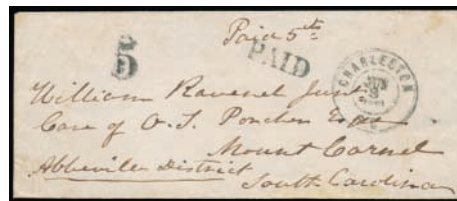 Paid 5 cts
5
PAID
CHARLESTON
JUN
8
William Ravenel Junr
Care of O. T. Porcher Esqr
Mount Carmel
Abbeville District
South Carolina